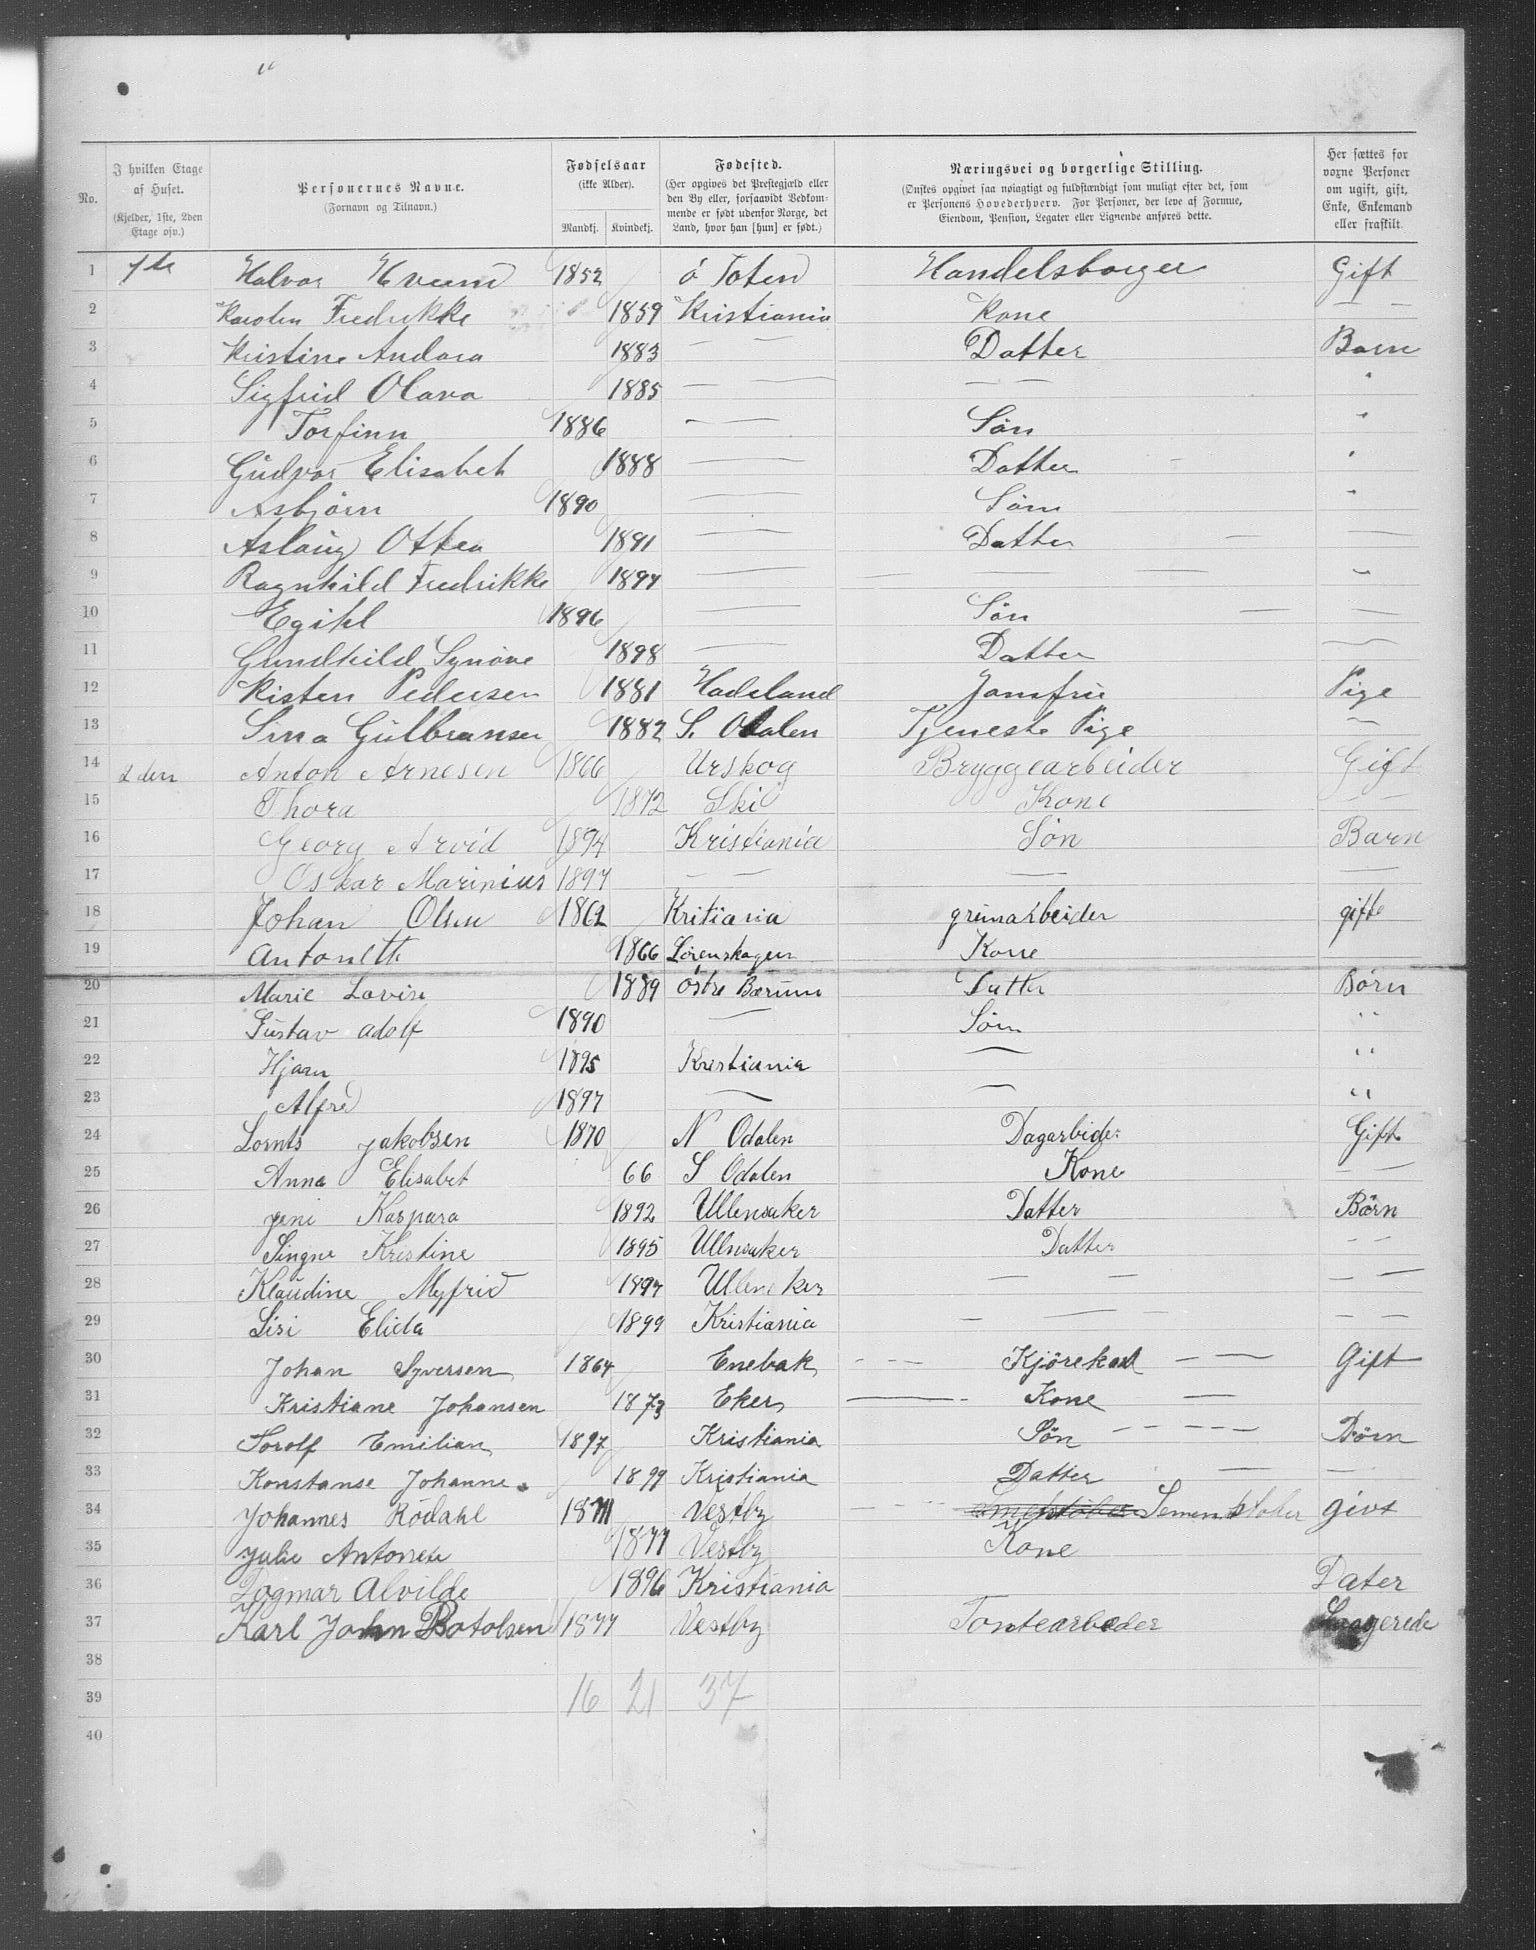 No.	J hvilken Etage af Huset. (Kjelder, 1ste, 2den Etage osv.)	Personernes Navne. (Fornavn og Tilnavn.)	Fødselsaar (ikke Alder). Mandkj. Kvindekj.	Fødested. (Her opgives det Prestegjæld eller den By eller, forsaavidt Vedkommende er født udenfor Norge, det Land, hvor han [hun] er født.)	Næringsvei og borgerlige Stilling. (Ønskes opgivet saa nøiagtigt og fuldstændigt som muligt efter det, som er Personens Hovederhverv. For Personer, der leve af Formue, Eiendom, Pension, Legater eller Lignende anføres dette.)	Her sættes for voxne Personer om ugift, gift, Enke, Enkemand eller fraskilt.
1 1te Halvor Hveem 1852 ö Toten Handelsborger Gift
2 Karolin Fredrikke 1859 Kristiania Kone — —
3 Kristine Andora 1883 — — Datter Barn
4 Sigfrid Olava 1885 — — — — "
5 Torfinn 1886 — — Sön "
6 Gudvor Elisabet 1888 — Datter "
7 Asbjörn 1890 — Sön "
8 Aslaug Ottea 1891 — Datter — —
9 Ragnhild Fredrikke 1894 — — — — "
10 Egihl 1896 — Sön — —
11 Gundhild Synöve 1898 — Datter —
12 Kisten Pedersen 1881 Hadeland Jomfru Pige
13 Sina Gulbransen 1882 S. Odalen Tjeneste Pige —
14 2den Anton Arnesen 1866 Urskog Bryggearbeider Gift
15 Thora 1872 Ski Kone — —
16 Georg Arvid 1894 Kristiania Sön Barn
17 Oskar Marinius 1897 — — — —
18 Johan Olsen 1862 Kritiania grünarbeider gifte
19 Antonette 1866 Lörenskogen Kone
20 Marie Lovise 1889 östre Bærum Datter Börn
21 Gustav adolf 1890 — Sön "
22 Hjarn 1895 Kristiania — "
23 Alfred 1897 — — "
24 Lornts jakobsen 1870 N Odalen Dagarbider Gift
25 Anna Elisabet 66 S Odalen Kone — —
26 jeni Kaspara 1892 Ullensaker Datter Börn
27 Singne Kristine 1895 Ullnsaker Datter — —
28 Klaudine Myfrid 1897 Ullensker — — — —
29 Lisi Elida 1899 Kristiania — — — — —
30 Johan Syversen 1864 Enebak — — — Kjörekarl — — Gift
31 Kristiane Johansen 1873 Eker — Kone —
32 Torolf Emilian 1897 Kristiania Sön — — — — Börn
33 Konstanse Johanne. 1899 Kristiania Datter — —
34 Johannes Rödahl 1871 Vestby — — — Sementstøber givt
35 Julie Antonete 1877 Vestby Kone
36 Dagmar Alvilde 1896 Kristiania Dater
37 Karl John Botolsen 1877 Vestby Tomtearbeder
38
39 16 21 37
40